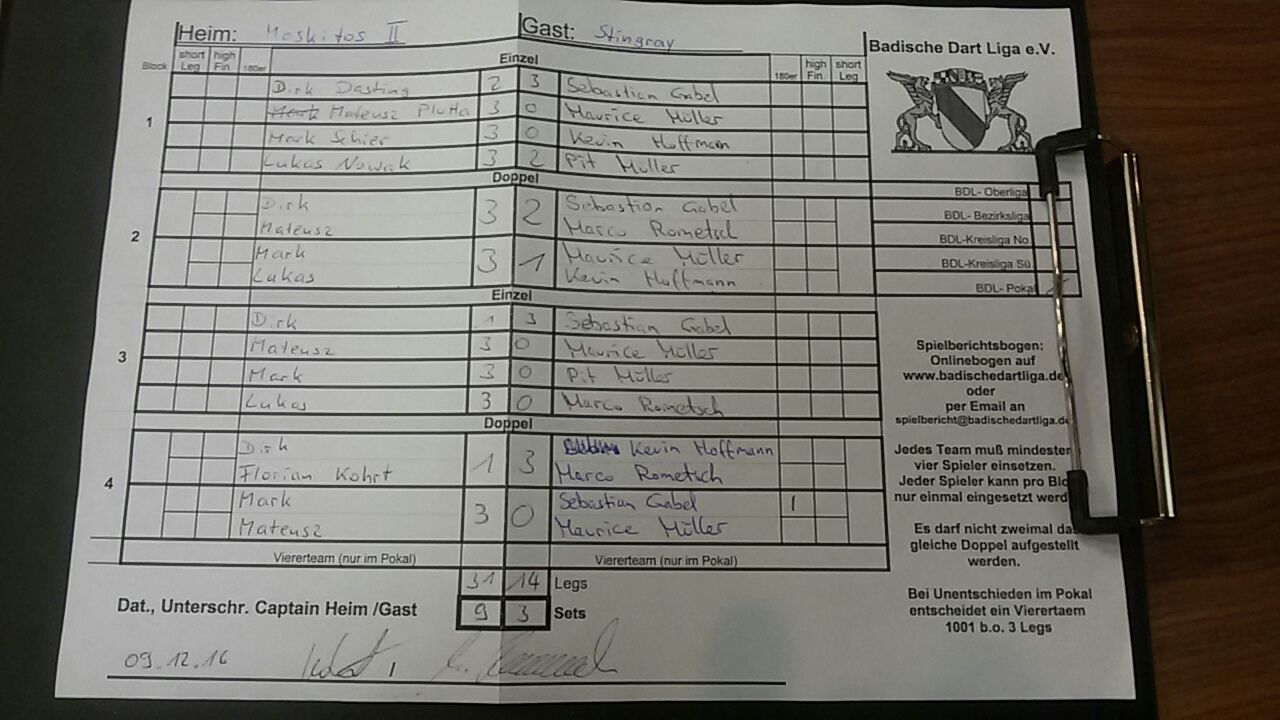 Heim: Moskitos II Gast: Stingray
Badische Dart Liga e.V.
Block short Leg high Fin. 180er Einzel 180er high Fin. short Leg
1
Dirk Dasting 2 3 Sebastian Gabel
Mark Mateusz Plutta 3 0 Maurice Müller
Mark Schier 3 0 Kevin Hoffmann
Lukas Nowak 3 2 Pit Müller
Doppel
2
Dirk 3 2 Sebastian Gabel
Mateusz Marco Rometsch
Mark 3 1 Maurice Müller
Lukas Kevin Hoffmann
Einzel
3
Dirk 1 3 Sebastian Gabel
Mateusz 3 0 Maurice Müller
Mark 3 0 Pit Müller
Lukas 3 0 Marco Rometsch
Doppel
4
Dirk 1 3 Kevin Hoffmann
Florian Kohrt Marco Rometsch
Mark 3 0 Sebastian Gabel 1
Mateusz Maurice Müller
Viererteam (nur im Pokal) Viererteam (nur im Pokal)
31 14 Legs
Dat., Unterschr. Captain Heim /Gast 9 3 Sets
09.12.16
BDL- Oberliga
BDL- Bezirksliga
BDL-Kreisliga No.
BDL-Kreisliga Sü
BDL- Pokal
Spielberichtsbogen:
Onlinebogen auf
www.badischedartliga.de
oder
per Email an
spielbericht@badischedartliga.de
Jedes Team muß mindesten
vier Spieler einsetzen.
Jeder Spieler kann pro Blo
nur einmal eingesetzt werd
Es darf nicht zweimal das
gleiche Doppel aufgestellt
werden.
Bei Unentschieden im Pokal
entscheidet ein Vierertaem
1001 b.o. 3 Legs